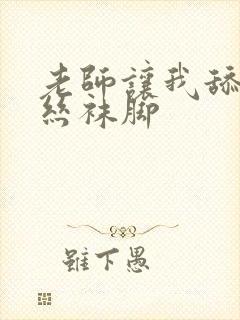 老師讓我舔
絲袜脚
雖下愚